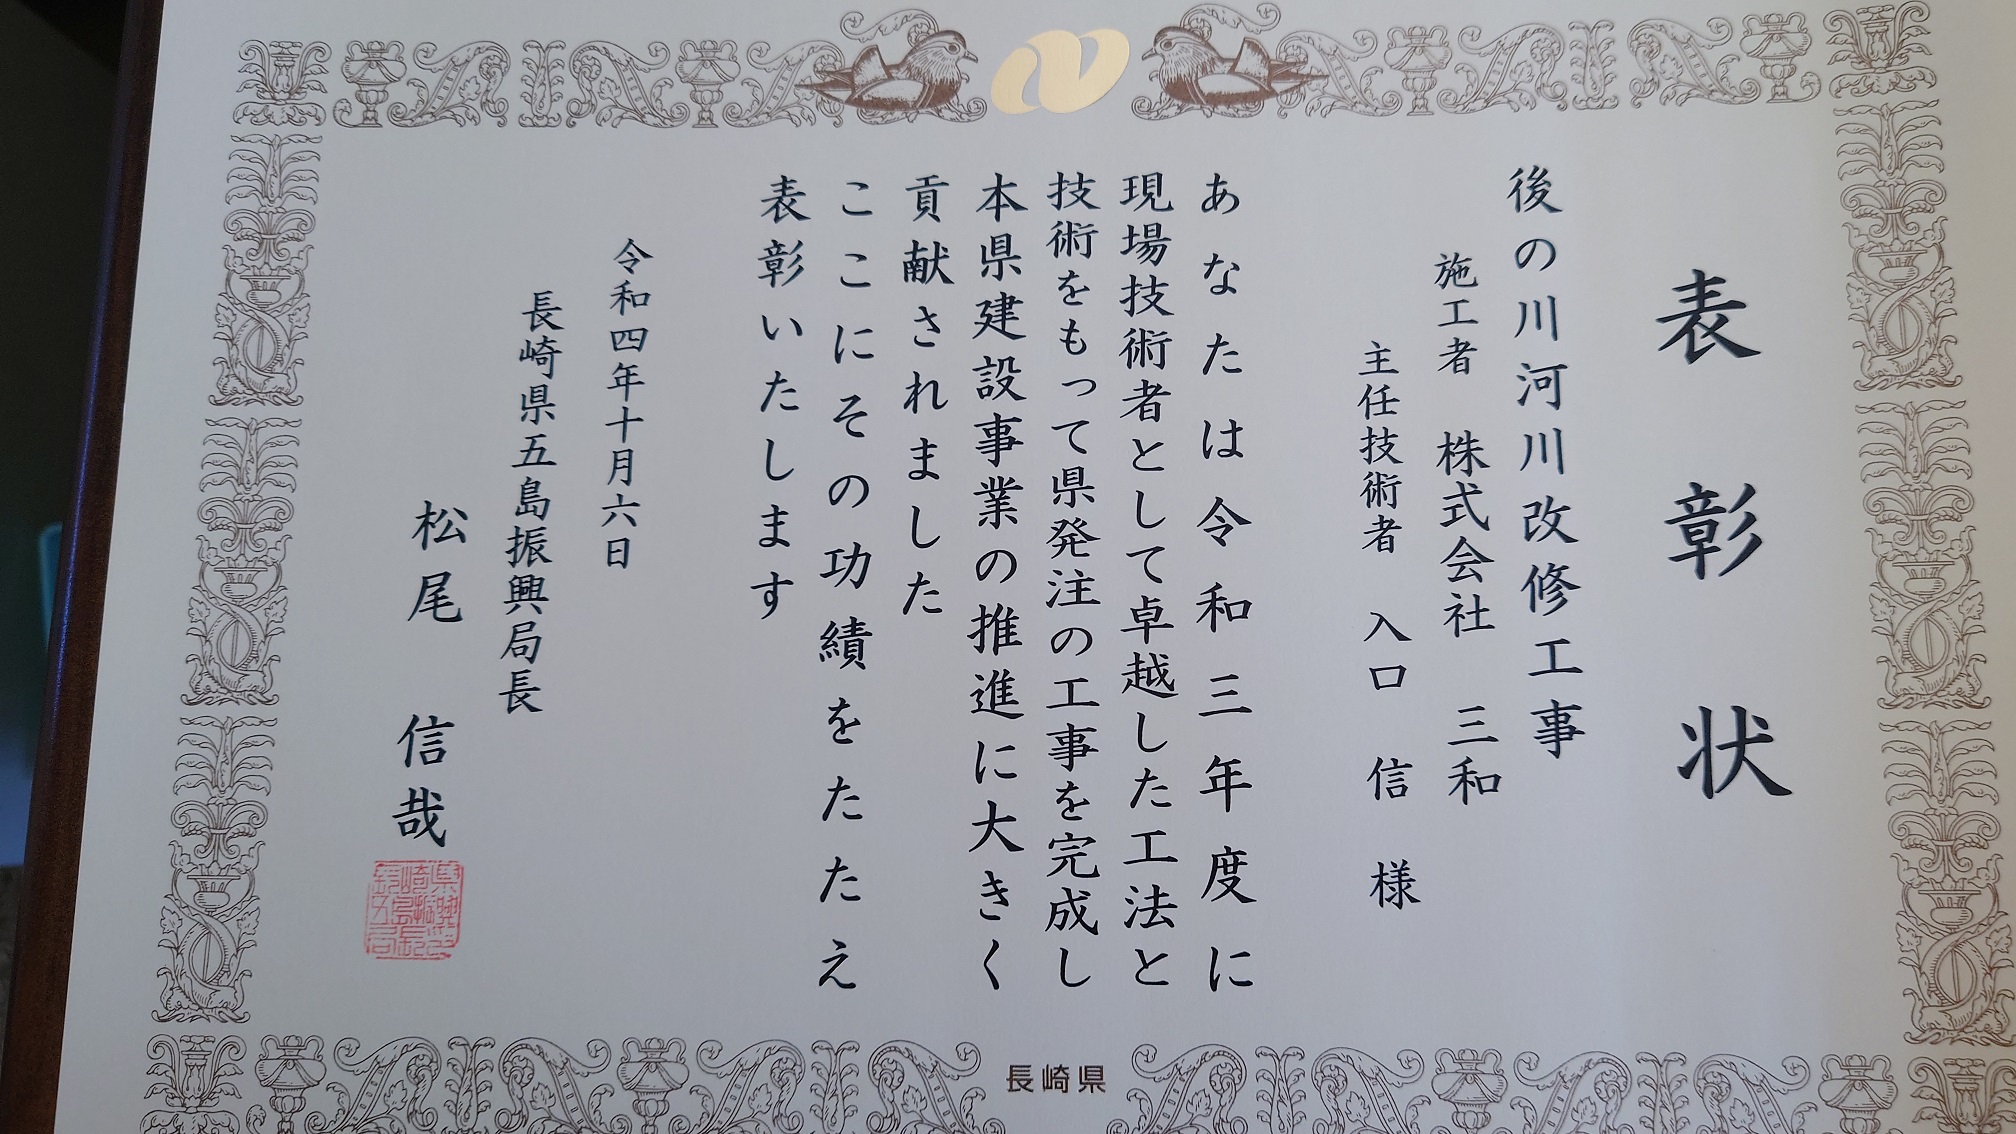 表彰状
後の川河川改修工事
施工者 株式会社 三和
主任技術者 入口 信 様
あなたは令和三年度に
現場技術者として卓越した工法と
技術をもって県発注の工事を完成し
本県建設事業の推進に大きく
貢献されました
ここにその功績をたたえ
表彰いたします
令和四年十月六日
長崎県五島振興局長
松尾 信哉
長崎県